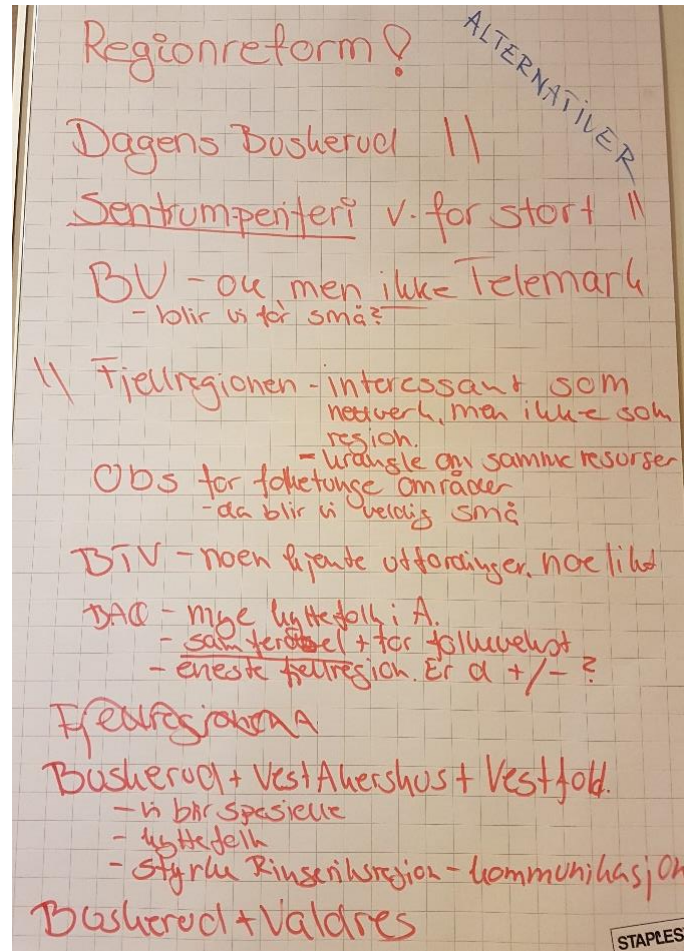 Regionreform!
ALTERNATIVER
Dagens Buskerud ||
Sentrum-periferi v. for stort ||
BV - ok, men ikke Telemark
- blir vi for små?
|| Fjellregionen - interessant som
nettverk, men ikke som
region.
- krangle om samme resurser
Obs for folketunge områder
- da blir vi veldig små
BTV - noen kjente utfordringer, noe likt
- mye hyttefolk i A.
- samferdsel + for folkevekst
- eneste fjellregion. Er d +/- ?
Fjellregionen
Buskerud + Vest Akershus + Vestfold.
- vi blir spesielle
- hyttefolk
- styrke Ringeriksregion - kommunikasjon
Buskerud + Valdres
STAPLES